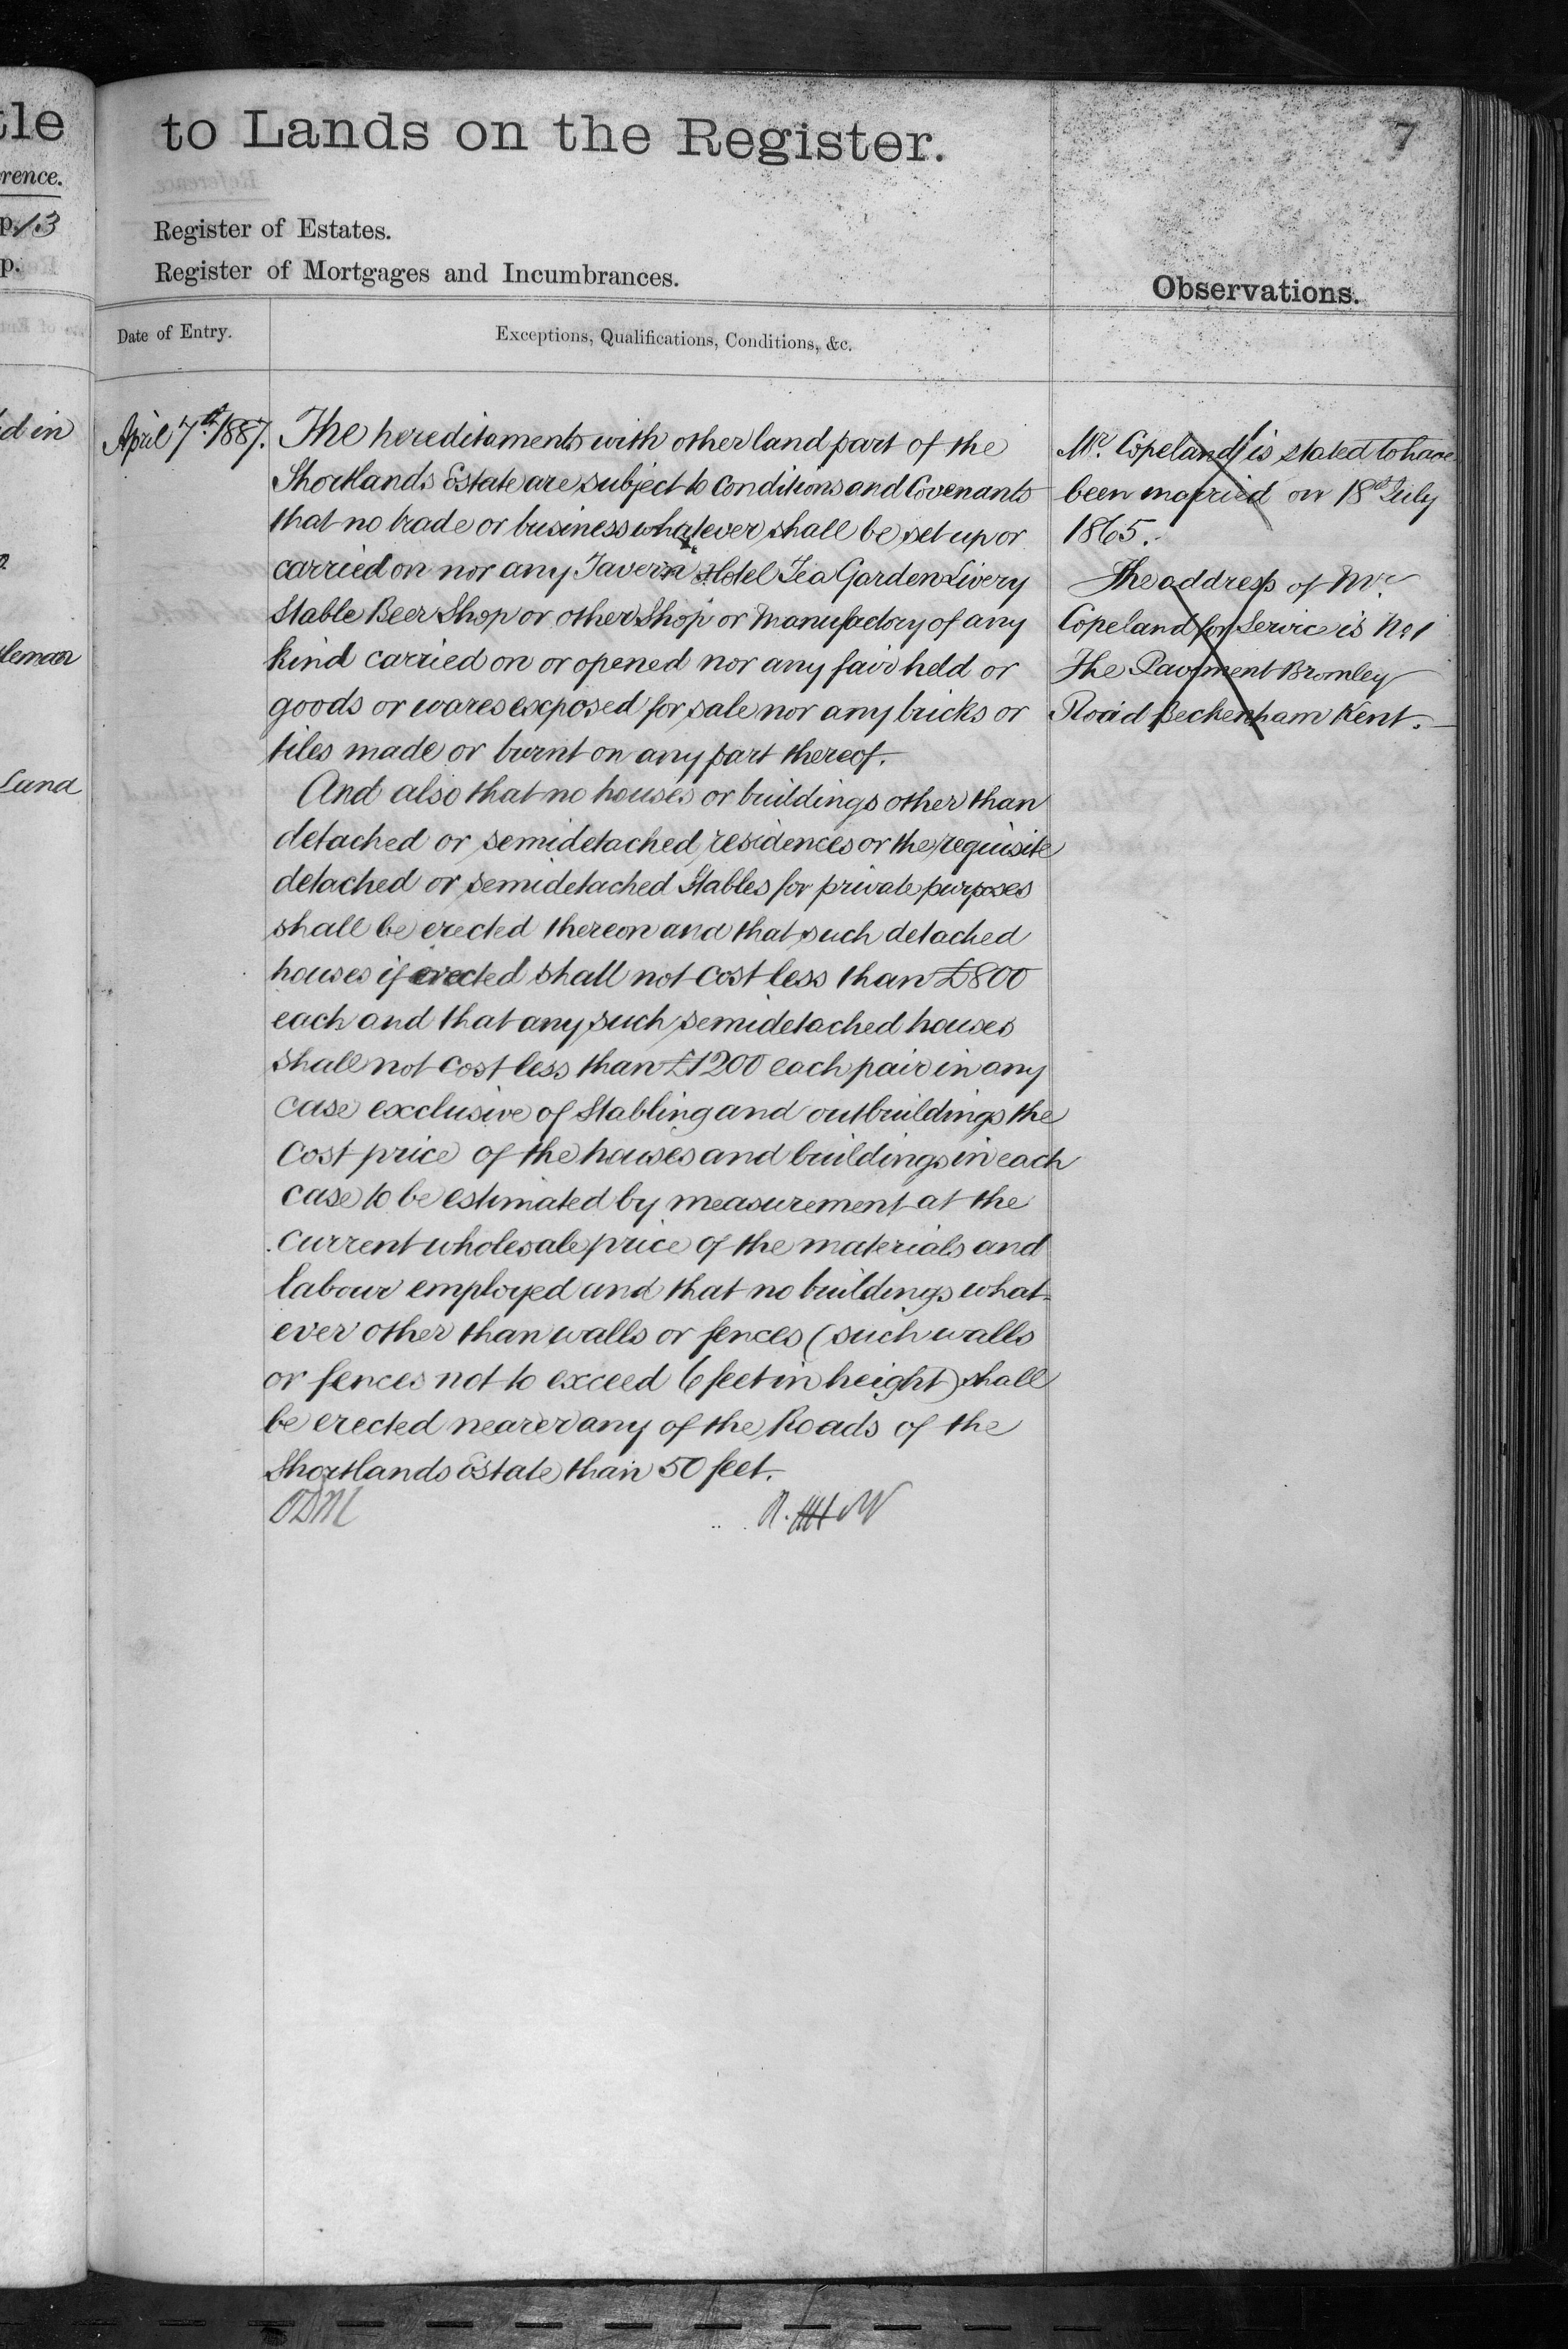 tle
rence.
p. 13
p.
d in
leman
Land
to Lands on the Register.
7
Register of Estates.
Register of Mortgages and Incumbrances.
Observations.
Date of Entry.
Exceptions, Qualifications, Conditions, &c.
April 7th 1887.
The hereditaments with other land part of the
Shortlands Estate are subject to conditions and Covenants
that no trade or business whatever shall be set up or
carried on nor any Tavern Hotel Tea Garden Livery
Stable Beer Shop or other Shop or Manufactory of any
kind carried on or opened nor any fair held or
goods or wares exposed for sale nor any bricks or
tiles made or burnt on any part thereof.
And also that no houses or buildings other than
detached or semidetached residences or the requisite
detached or semidetached Stables for private purposes
shall be erected thereon and that such detached
houses if erected shall not cost less than £800
each and that any such semidetached houses
shall not cost less than £1200 each pair in any
case exclusive of Stabling and outbuildings the
cost price of the houses and buildings in each
case to be estimated by measurement at the
current wholesale price of the materials and
labour employed and that no buildings what-
ever other than walls or fences (such walls
or fences not to exceed 6 feet in height) shall
be erected nearer any of the Roads of the
Shortlands Estate than 50 feet.
Mr. Copeland is stated to have
been married on 18th July
1865.
The address of Mr.
Copeland for Service is No 1
The Pavement Bromley
Road Beckenham Kent.